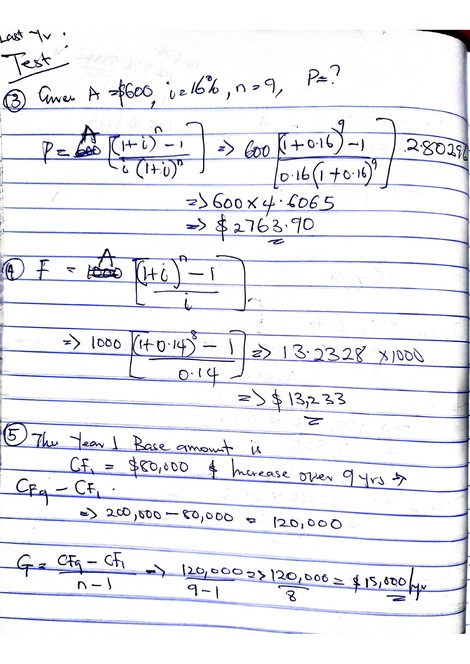 Last Yr.
Test
③ Given A = $600, i = 16%, n = 9, P = ?
P = A [(1+i)^n - 1 / i(1+i)^n] => 600 [(1+0.16)^9 - 1 / 0.16(1+0.16)^9] 2.80296
=> 600 x 4.6065
=> $2763.90
④ F = A [(1+i)^n - 1 / i]
=> 1000 [(1+0.14)^8 - 1 / 0.14] => 13.2328 x 1000
=> $13,233
⑤ The Year 1 Base amount is
CF₁ = $80,000 & Increase over 9 yrs →
CF₉ - CF₁.
=> 200,000 - 80,000 = 120,000
G = CF₉ - CF₁ / n - 1 => 120,000 / 9 - 1 => 120,000 / 8 = $15,000/yr